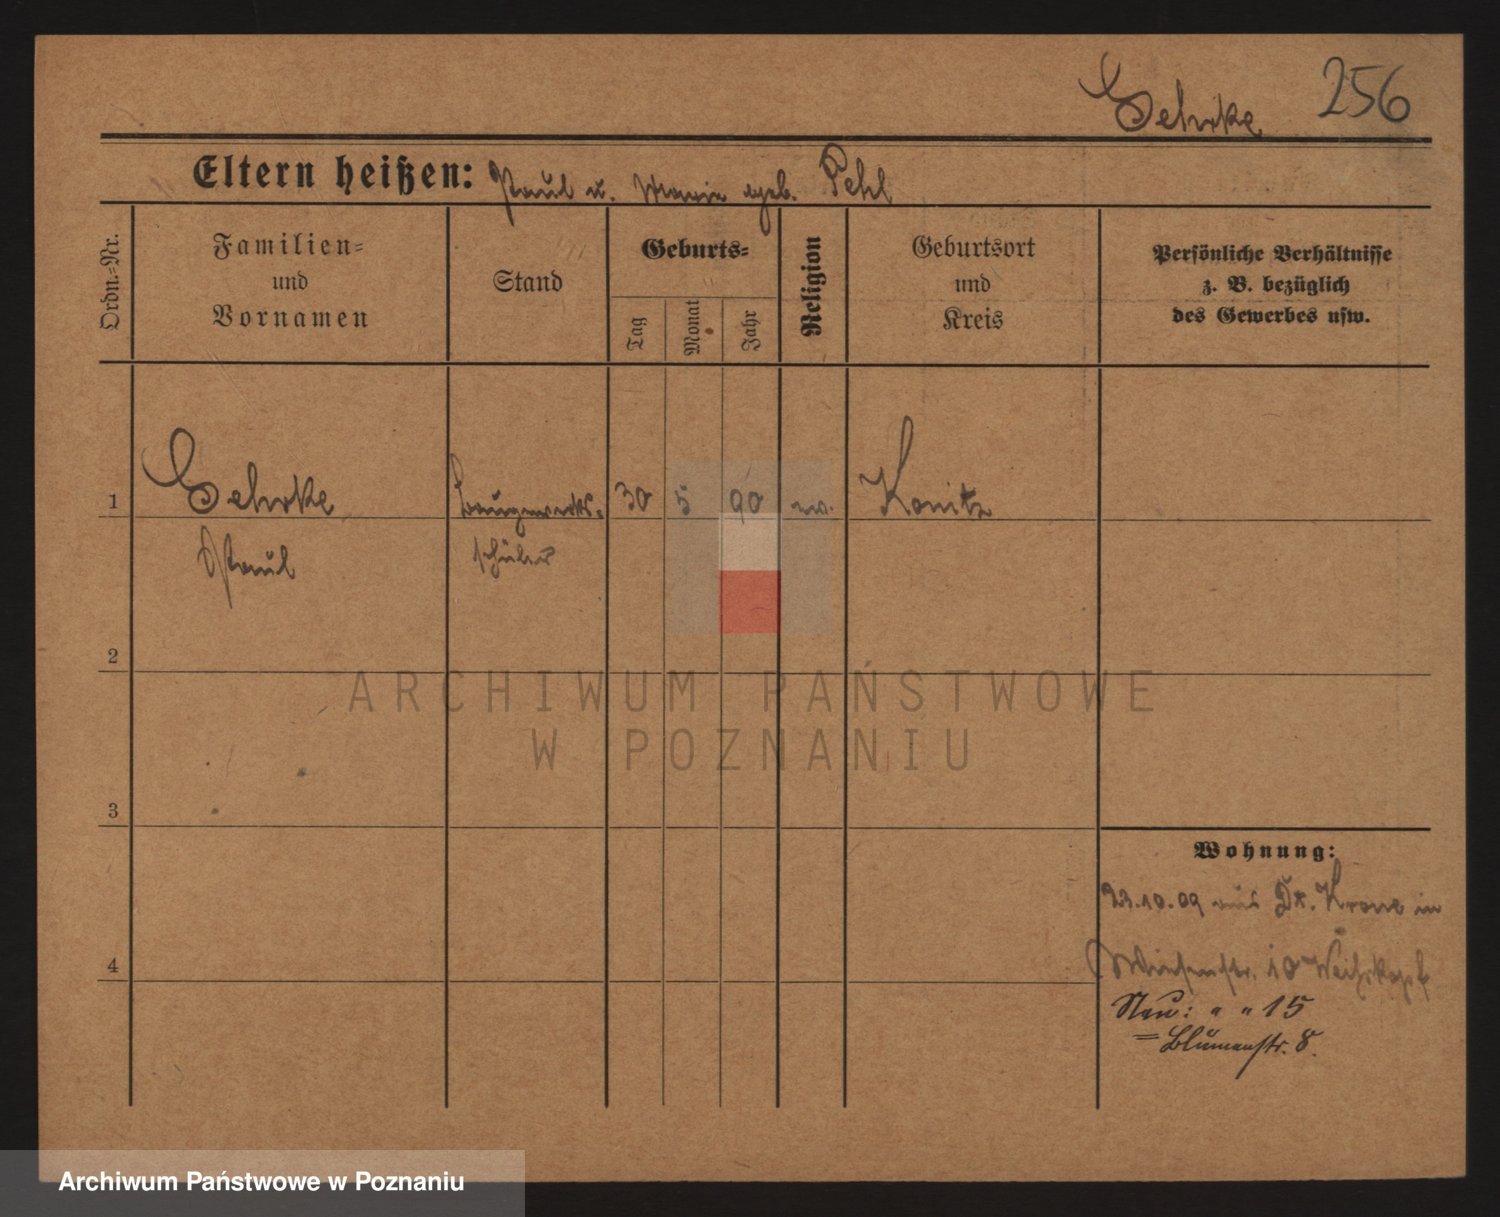 Gehrke 256
Eltern heißen: Paul u. Maria geb. Pehl
Ordn.=Nr.
Familien=
und
Vornamen
Stand
Geburts=
Tag
Monat
Jahr
Religion
Geburtsort
und
Kreis
Persönliche Verhältnisse
z. B. bezüglich
des Gewerbes usw.
1 Gehrke Baugewerks- 30 5 90 ev. Konitz
Paul schüler
2
3
4
Wohnung:
23.10.09 aus Dt. Krone in
10
Neu: " " 15
= Blumenstr. 8.
ARCHIWUM PAŃSTWOWE
W POZNANIU
Archiwum Państwowe w Poznaniu